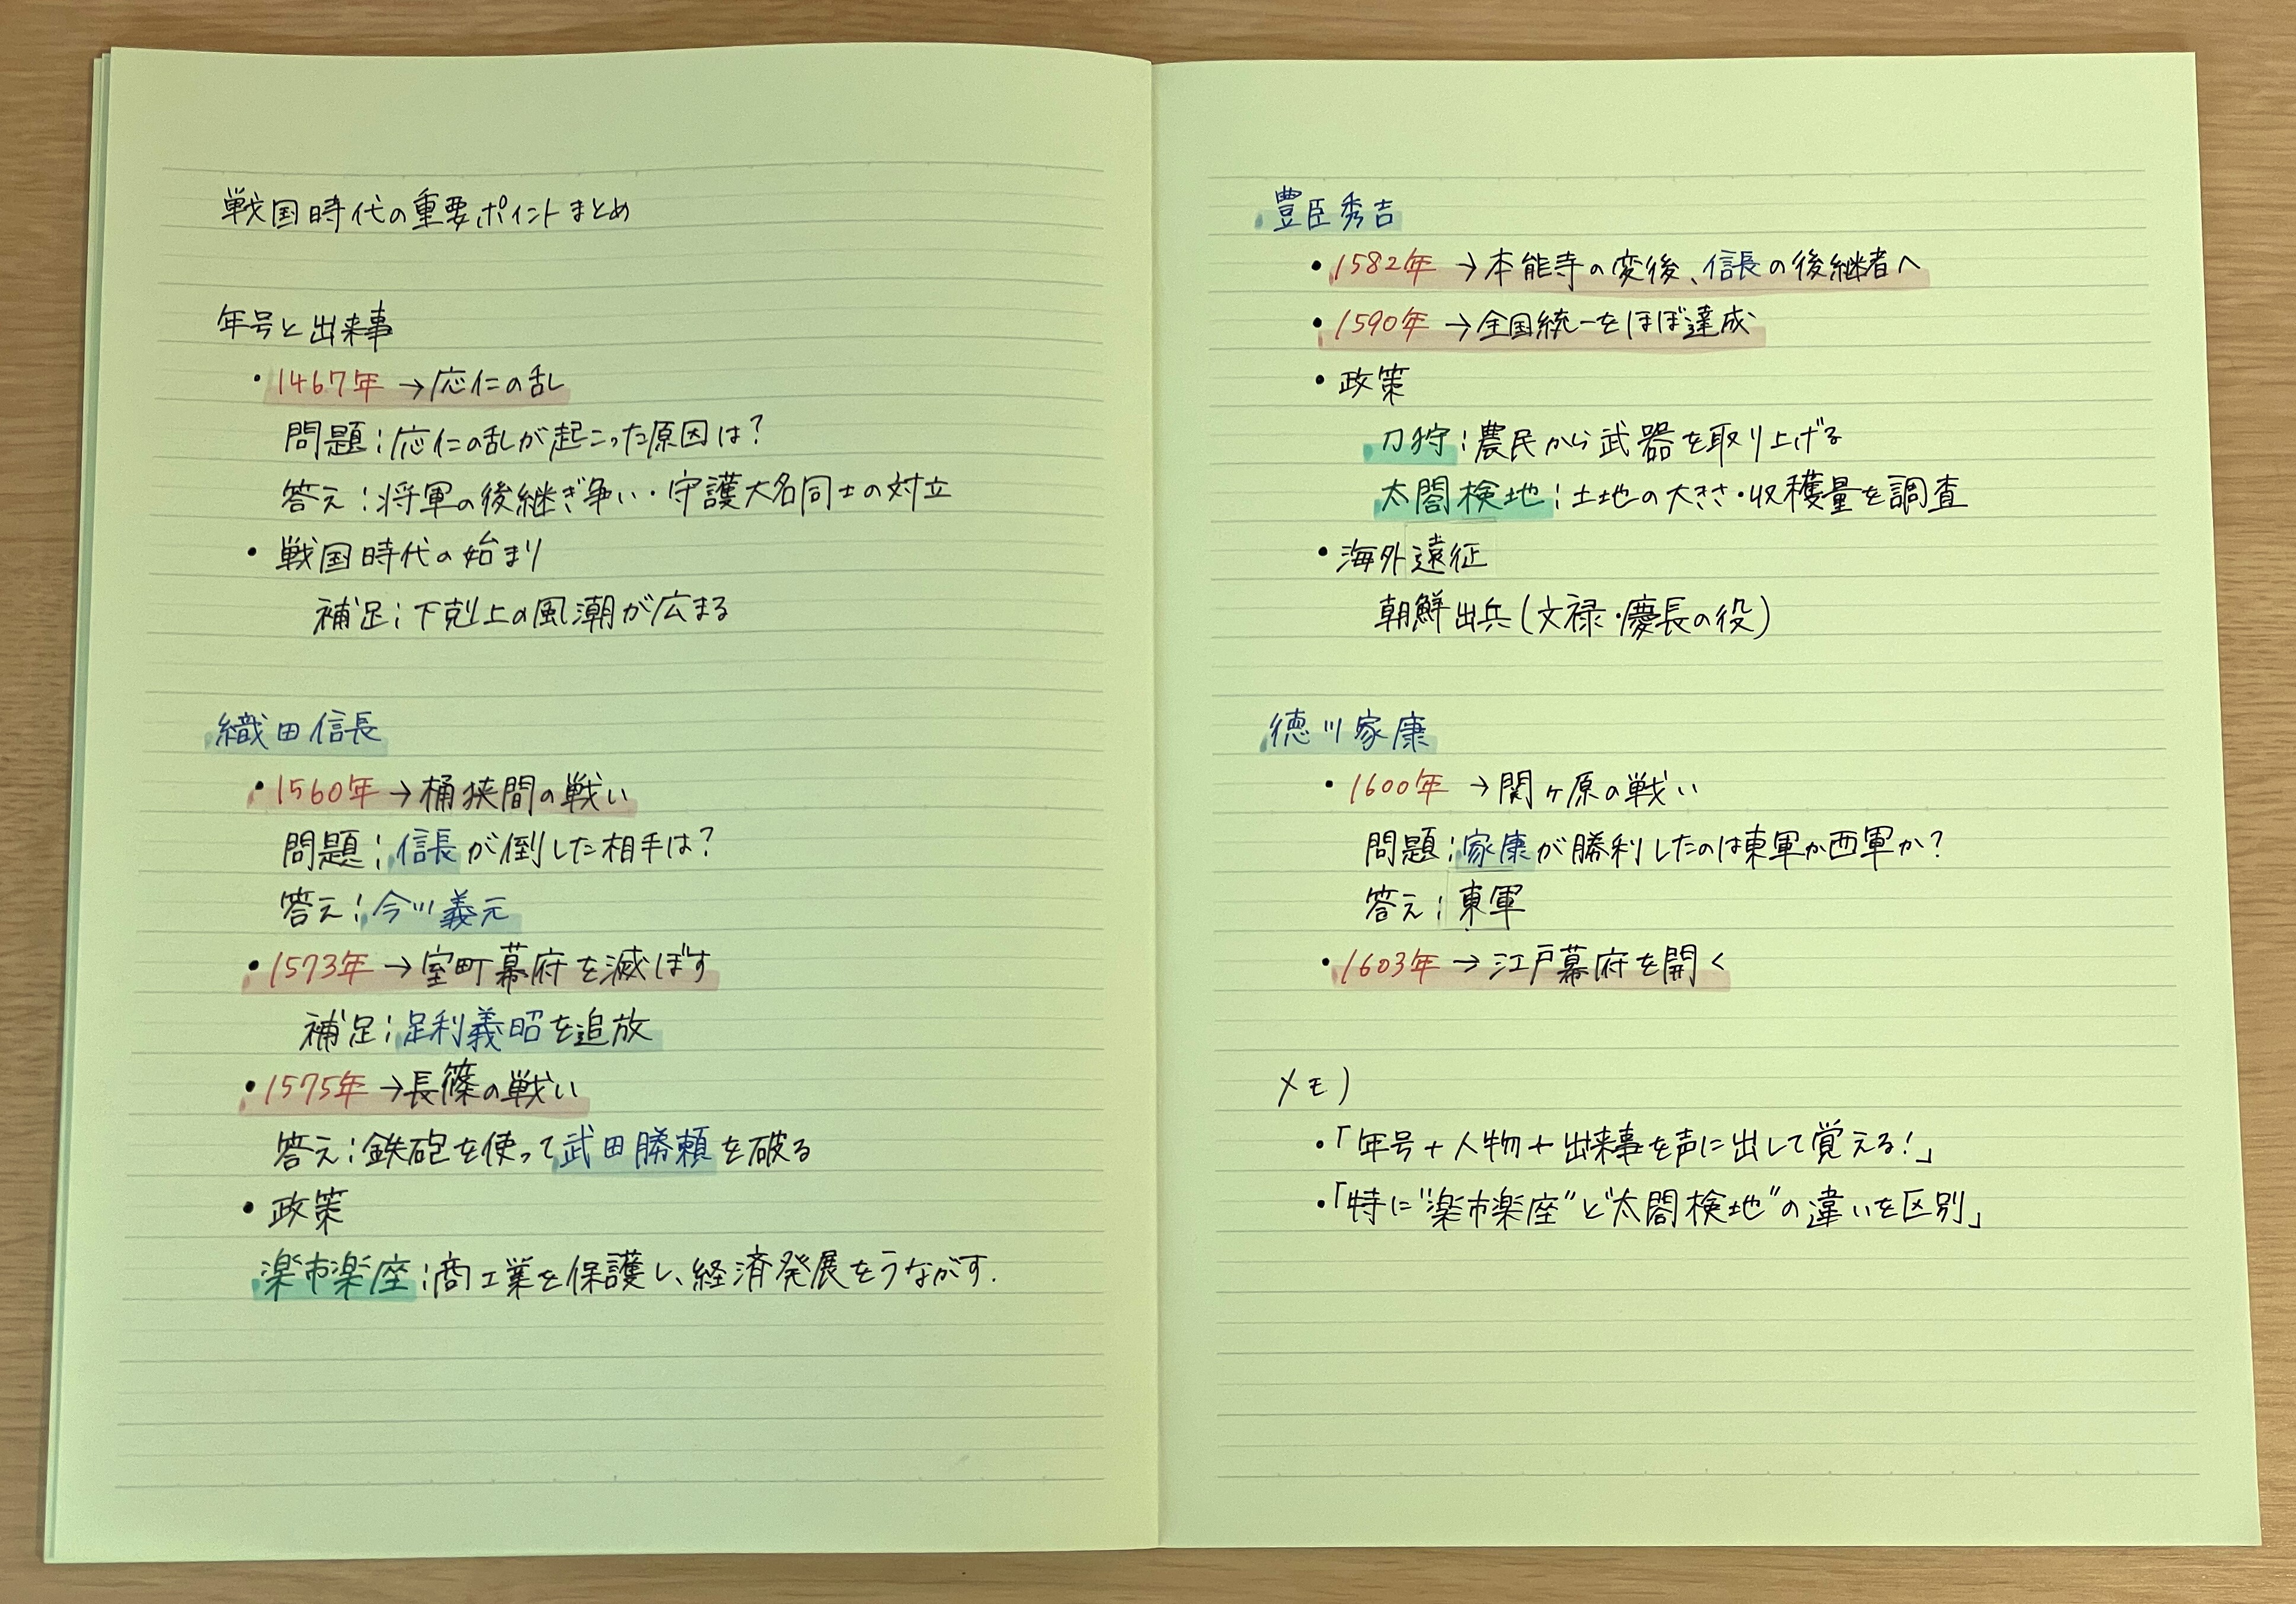 戦国時代の重要ポイントまとめ
年号と出来事
・1467年→応仁の乱
問題：応仁の乱が起こった原因は？
答え：将軍の後継ぎ争い・守護大名同士の対立
・戦国時代の始まり
補足：下剋上の風潮が広まる
織田信長
・1560年→桶狭間の戦い
問題：信長が倒した相手は？
答え：今川義元
・1573年→室町幕府を滅ぼす
補足：足利義昭を追放
・1575年→長篠の戦い
答え：鉄砲を使って武田勝頼を破る
・政策
楽市楽座：商工業を保護し、経済発展をうながす.
豊臣秀吉
・1582年→本能寺の変後、信長の後継者へ
・1590年→全国統一をほぼ達成
・政策
刀狩：農民から武器を取り上げる
太閤検地：土地の大きさ・収穫量を調査
・海外遠征
朝鮮出兵(文禄・慶長の役)
徳川家康
・1600年→関ヶ原の戦い
問題：家康が勝利したのは東軍か西軍か？
答え：東軍
・1603年→江戸幕府を開く
メモ)
・「年号+人物+出来事を声に出して覚える!」
・「特に"楽市楽座"と"太閤検地"の違いを区別」